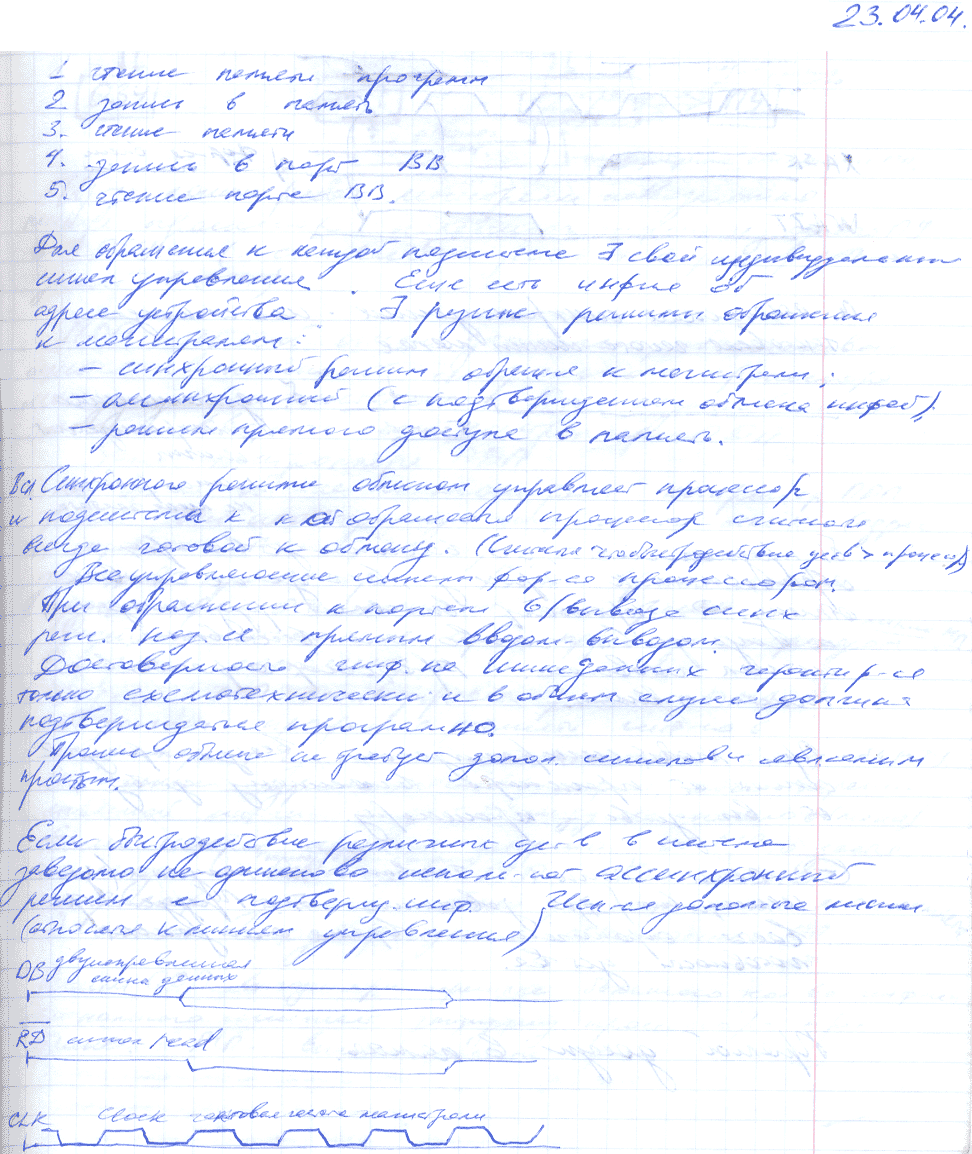 23.04.04.
1 чтение памяти программ
2 запись в память
3. чтение памяти
4. запись в порт ВВ
5. чтение порта ВВ.
Для обращения к каждой подсистеме ∃ свой индивидуальный
сигнал управления. Еще есть инфие об
адресе устройства ∃ режимы обращения
к магистралям:
– синхронный режим обращ-я к магистрали;
– асинхронный (с подтверждением обмена инфой);
– режим прямого доступа в память.
Синхронного режима обменом управляет процессор
и подсистема к кот обращается процессор считается
всегда готовой к обмену. (Считаем что быстродействие устр > процессора)
Все управляющие сигналы фор-ся процессором.
При обращении к портам в/вывода синх
реж. наз-ся прямым вводом-выводом.
Достоверность инф. на шине данных гарантир-ся
только схемотехнически и в общем случае должна
подтверждаться програмно.
обмена не требует допол. сигналов и является
простым.
Если быстродействие различных устр в системе
заведомо не одинаково использ-ют ассинхронный
режим с подтвержд. инф.
(относятся к линиям управления)
DB двунаправленная
шина данных
RD сигнал read
CLK Clock тактовая частота магистрали